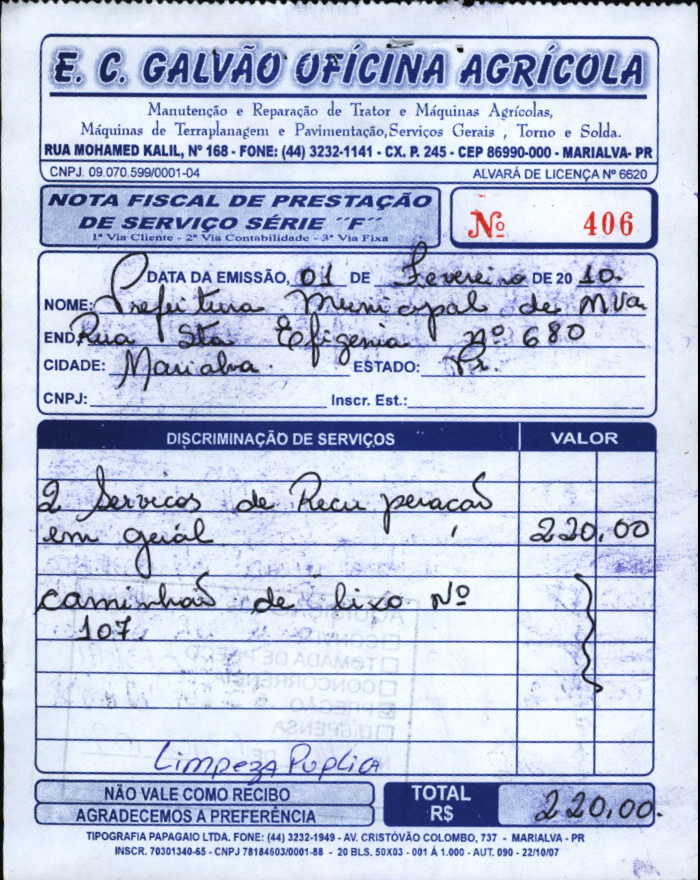 E. C. GALVÃO OFÍCINA AGRÍCOLA
Manutenção e Reparação de Trator e Máquinas Agrícolas,
Máquinas de Terraplanagem e Pavimentação,Serviços Gerais , Torno e Solda.
RUA MOHAMED KALIL, Nº 168 - FONE: (44) 3232-1141 - CX. P. 245 - CEP 86990-000 - MARIALVA- PR
CNPJ. 09.070.599/0001-04 ALVARÁ DE LICENÇA Nº 6620
NOTA FISCAL DE PRESTAÇÃO
DE SERVIÇO SÉRIE ´´F´´
1ª Via Cliente - 2ª Via Contabilidade - 3ª Via Fixa
Nº 406
DATA DA EMISSÃO, 01 DE Fevereiro DE 20 10.
NOME: Prefeitura Municipal de MVa
END. Rua Sta Efigenia nº 680
CIDADE: Marialva. ESTADO: Pr.
CNPJ: Inscr. Est.:
DISCRIMINAÇÃO DE SERVIÇOS VALOR
2 Servicos de Recuperação
em geral 220,00
caminhão de lixo Nº
107
TOMADA DE PREÇO
CONCORRÊNCIA
PREGÃO
DISPENSA
Limpeza Puplica
NÃO VALE COMO RECIBO
AGRADECEMOS A PREFERÊNCIA
TOTAL
R$ 220,00.
TIPOGRAFIA PAPAGAIO LTDA. FONE: (44) 3232-1949 - AV. CRISTÓVÃO COLOMBO, 737 - MARIALVA - PR
INSCR. 70301340-65 - CNPJ 78184603/0001-88 - 20 BLS. 50X03 - 001 Á 1.000 - AUT. 090 - 22/10/07